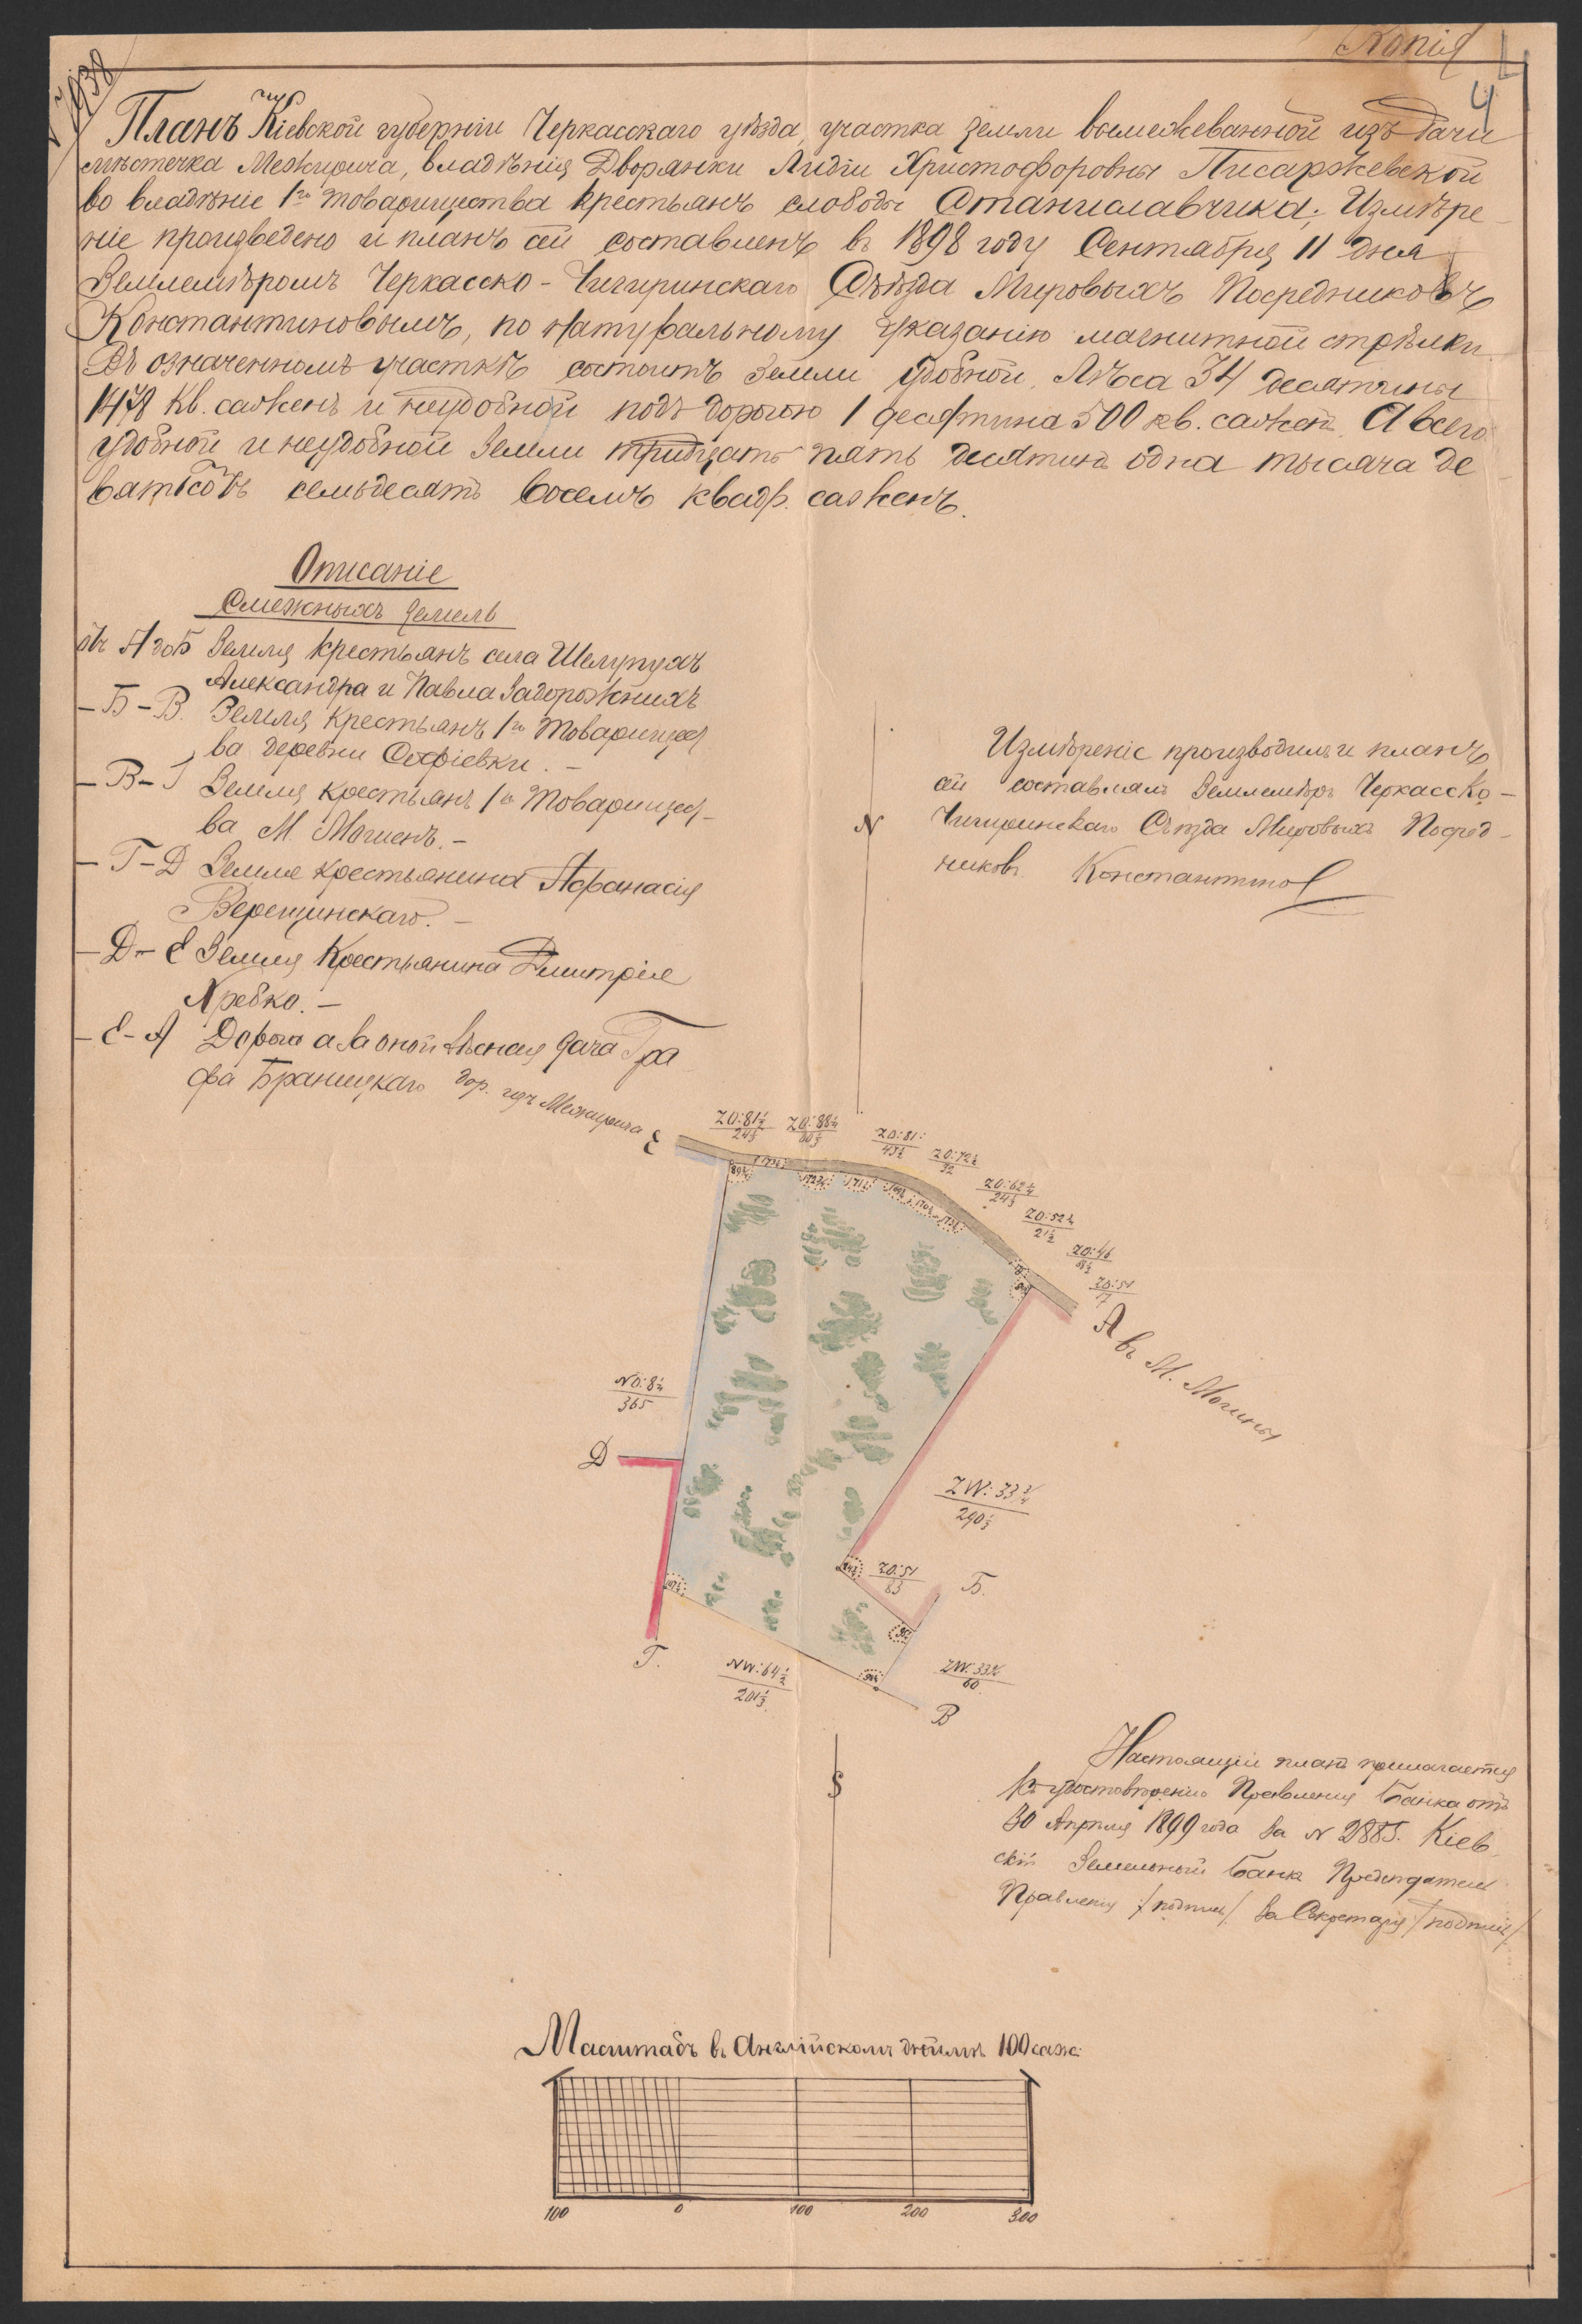 Копія
4
Планъ Кіевской губерніи Черкасскаго уѣзда, участка земли вымежеванной изъ дачи
мѣстечка Межирича, владѣнія Дворянки Лидіи Христофоровны Писаржевской
во владѣніе 1го товарищества крестьянъ слободы Станиславчика; Измѣре-
ніе произведено и планъ сей составленъ въ 1898 году Сентября 11 дня
Землемѣромъ Черкасско-Чигиринскаго Съѣзда Мировыхъ Посредниковъ
Константиновымъ, по натуральному указанію магнитной стрѣлки.
Въ означенномъ участкѣ состоитъ земли удобной, Лѣса 34 десятины
1478 кв. саженъ и неудобной подъ дорогою 1 десятина 500 кв. сажен. А всего
удобной и неудобной земли тридцать пять десятинъ одна тысяча де
вятьсотъ семьдесятъ восемъ квадр. саженъ.
Описаніе
Смежныхъ земель
отъ А до Б Земля крестьянъ села Шелупухъ
Александра и Павла Задорожнихъ
– Б – В. Земля крестьянъ 1го Товарищест
ва деревни Софіевки. –
– В – Г Земля крестьянъ 1го Товарищест-
ва М. Мошенъ. –
– Г – Д Земля крестьянина Афанасія
Верещинскаго. –
– Д – Е Земля Крестьянина Дмитрія
Хребко. –
– Е – А Дорога а за оной лѣсная дача Гра
фа Браницкаго
Измѣреніе производилъ и планъ
сей составлялъ Землемѣръ Черкасско-
Чигиринскаго Съѣзда Мировыхъ Посред-
никовъ Константинов
N
дор. изъ Межирича
Е
ZO:81½
24⅓
ZO:88¼
60⅓
ZO:81
43½
ZO:72½
32
ZO:62¼
24⅓
ZO:52½
21½
ZO:46
ZO:51
17
А
въ М. Мошны
NO:8¼
365
Д
ZW:33¾
290⅓
ZO:51
83
Б.
Г.
NW:64½
201⅓
ZW:33¾
60
В
S
Настоящій планъ прилагается
къ удостовѣренію Правленія Банка отъ
30 Апрѣля 1899 года за N 2885. Кіев-
скій Земельный Банкъ Предсѣдатель
Правленія /подпись/ За Секретаря /подпись/
Масштабъ въ Англійскомъ дюймѣ 100 саж:
100 0 100 200 300